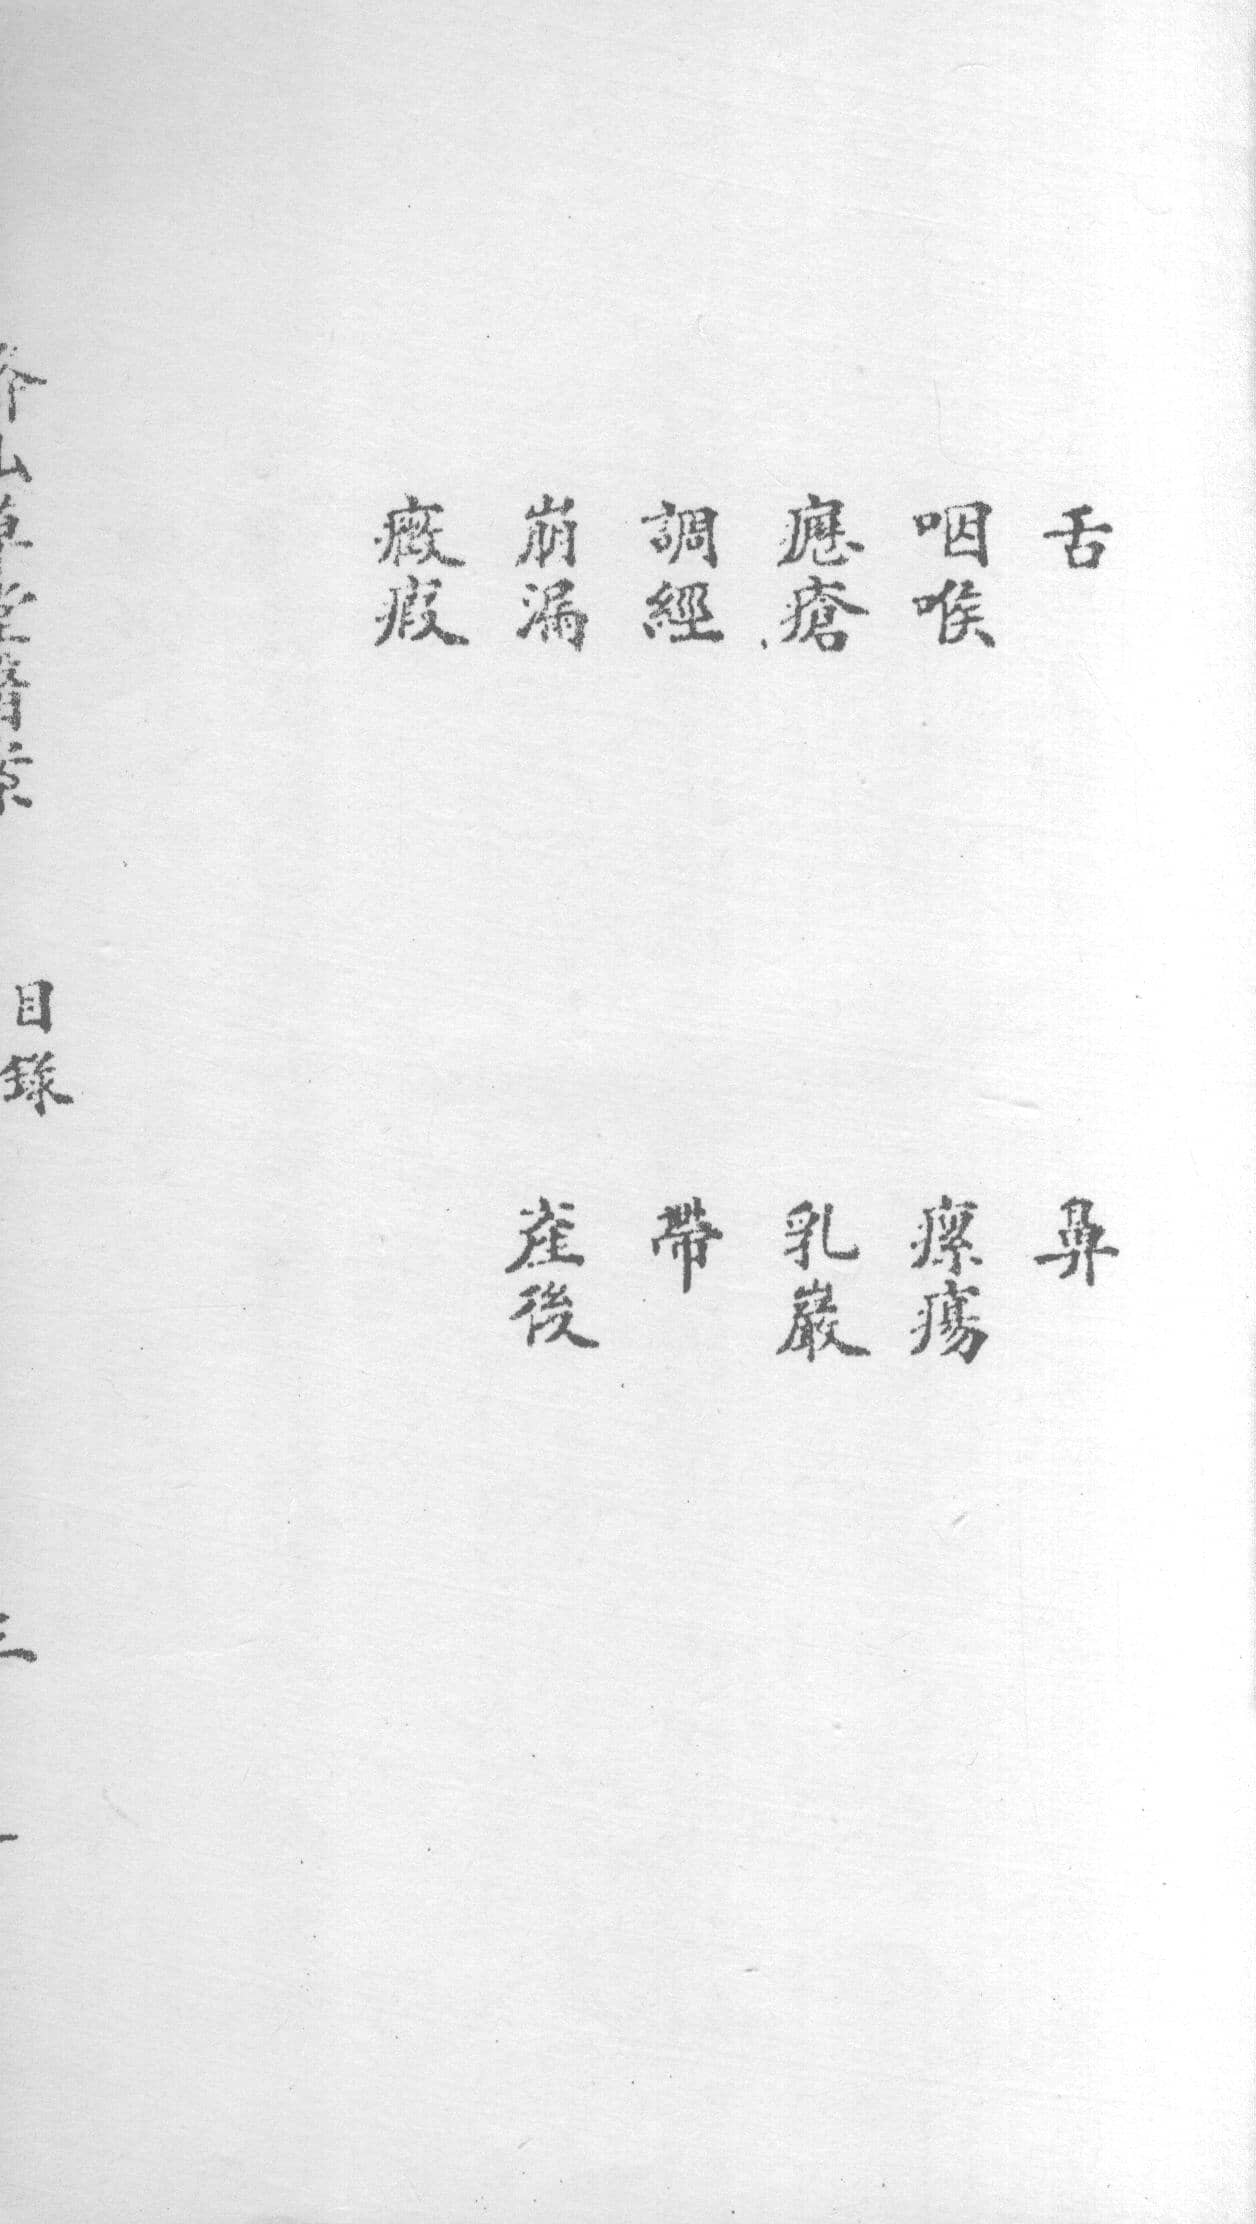 舌　鼻
咽喉　瘰瘍
瘡　乳巖
調經　帶
崩漏　產後
癥瘕
山草堂醫案　目錄　三